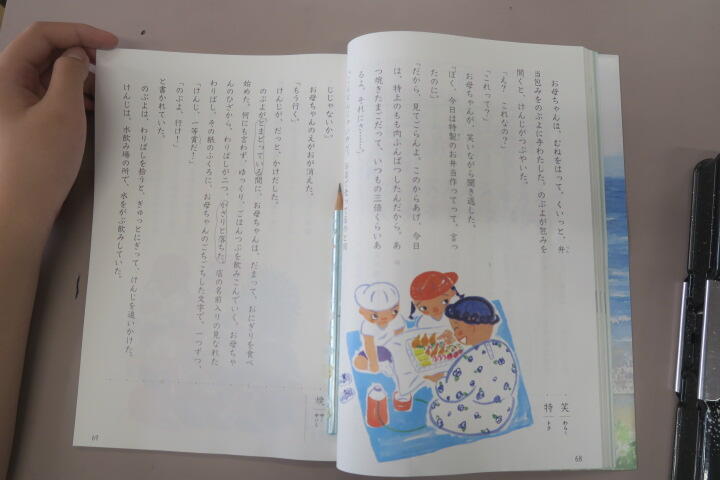 お母ちゃんは、むねをはって、くいっと、弁
当包みをのぶよに手わたした。のぶよが包みを
開くと、けんじがつぶやいた。
「え？　これなの？」
「これって？」
お母ちゃんが、笑いながら聞き返した。
「ぼく、今日は特製のお弁当作ってって、言っ
たのに」
「だから、見てごらんよ。このからあげ、今日
は、特上のもも肉ふんぱつしたんだから。あ
つ焼きたまごだって、いつもの三倍くらいあ
るよ。それにさ……。
笑
わら
特
トク
68
じじゃないか」
お母ちゃんのえがおが消えた。
「もう行く」
けんじが、だっと、かけだした。
のぶよがとまどっている間に、お母ちゃんは、だまって、おにぎりを食べ
始めた。何にも言わず、ゆっくり、ごはんつぶを飲みこんでいく。お母ちゃ
んのひざから、わりばしが二つ、かさりと落ちた。店の名前入りの見なれた
わりばし。その紙のふくろに、お母ちゃんのごちごちした文字で、一つずつ、
「けんじ、一等賞だ！」
「のぶよ、行け！」
と書かれていた。
のぶよは、わりばしを拾うと、ぎゅっとにぎって、けんじを追いかけた。
けんじは、水飲み場の所で、水をがぶ飲みしていた。
焼
69